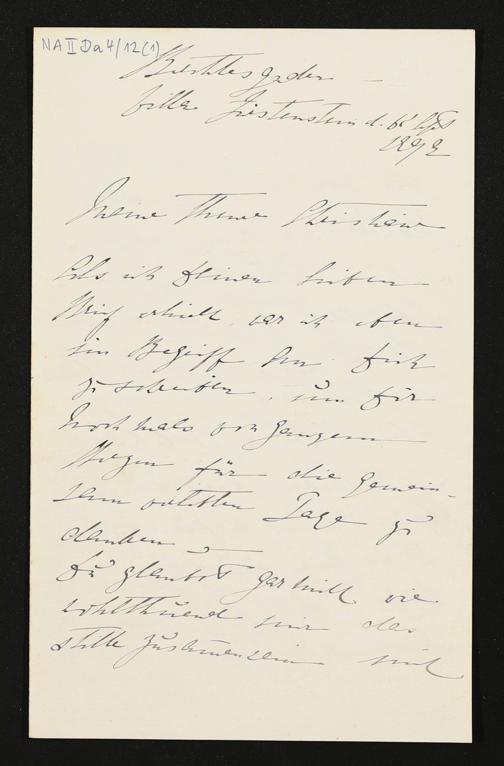 NA II Da 4/12 (1)
Berchtesgaden —
Villa Liestenstein d. 6' Spt
1892
Meine Theure Christiane
Als ich Deinen lieben
Brief erhielt war ich eben
im Begriff Dich
zu schreiben, um Dir
Nochmals von ganzem
Herzen für die gemein-
sam verlebten Tage zu
danken —
Du glaubst gar nicht wie
wohlthuend mir das
stille Zusammensein mit